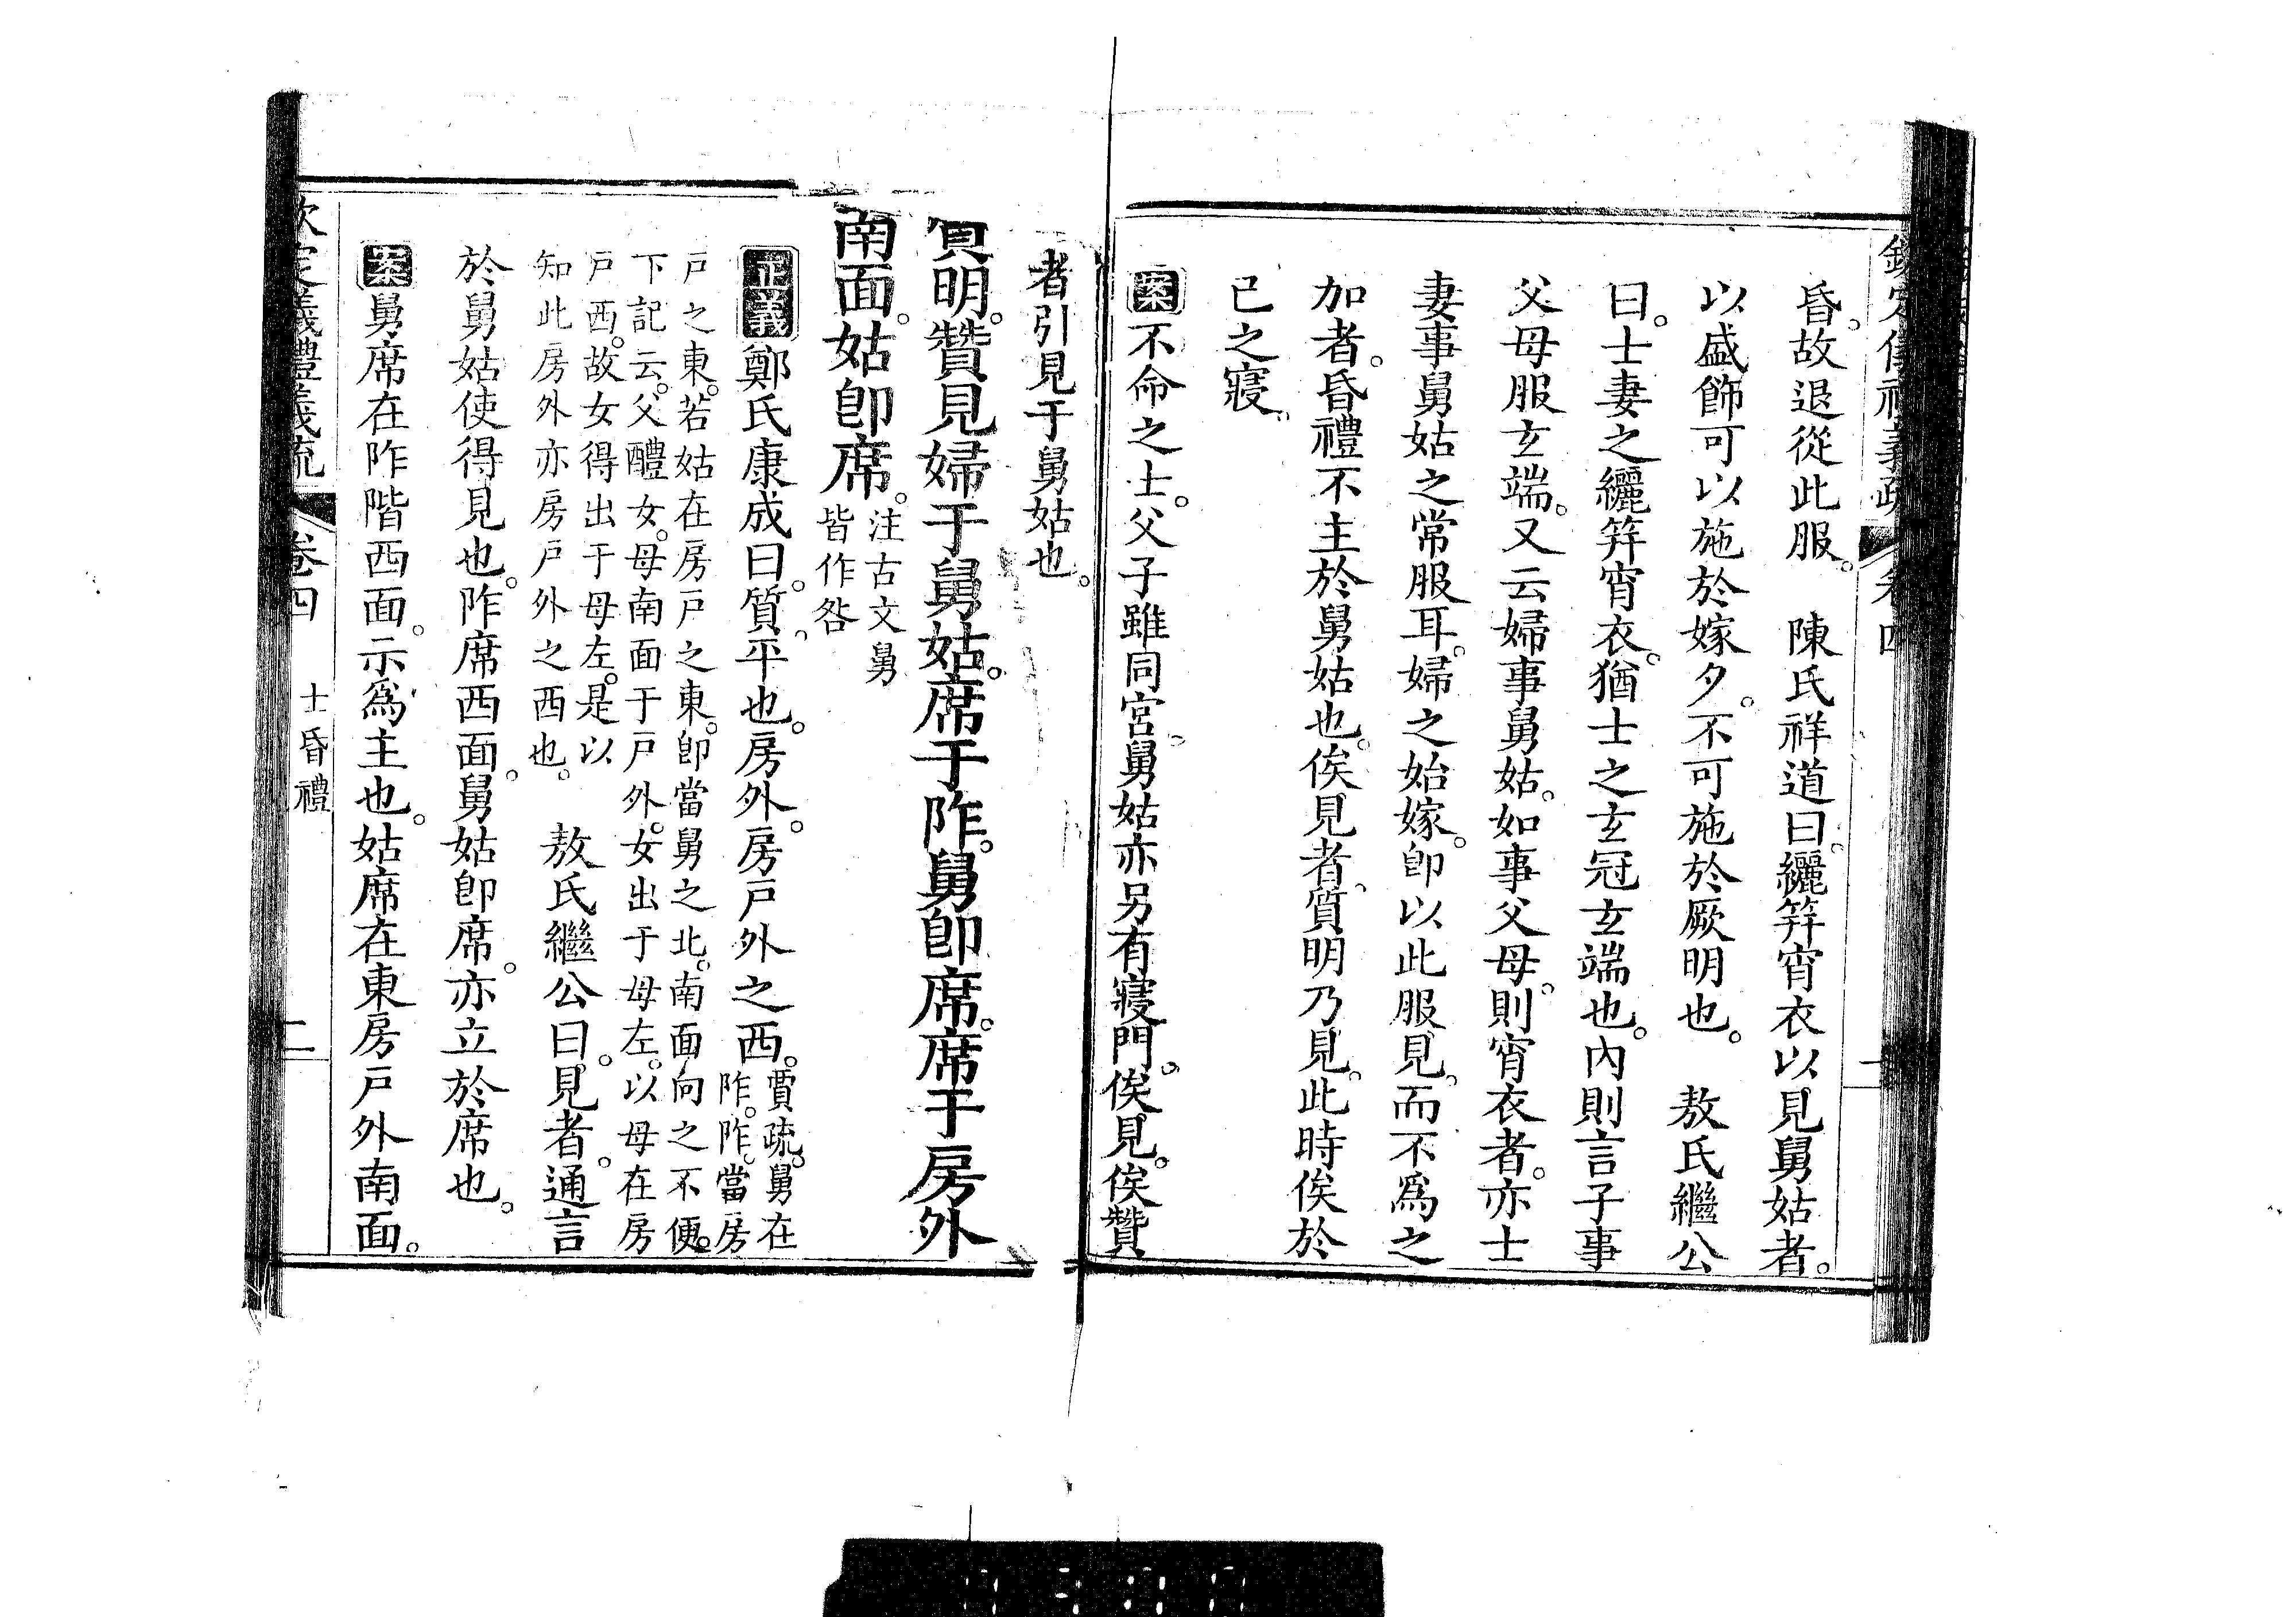 欽定儀禮義疏 卷四
昏。故退從此服。 陳氏祥道曰。纚笄宵衣以見舅姑者。
以盛飾可以施於嫁夕。不可施於厥明也。 敖氏繼公
曰。士妻之纚笄宵衣。猶士之玄冠玄端也。內則言子事
父母服玄端。又云婦事舅姑。如事父母。則宵衣者。亦士
妻事舅姑之常服耳。婦之始嫁。卽以此服見。而不爲之
加者。昏禮不主於舅姑也。俟見者。質明乃見。此時俟於
已之寢。
案不命之士。父子雖同宮。舅姑亦另有寢門。俟見。俟贊
者引見于舅姑也。
質明。贊見婦于舅姑。席于阼。舅卽席。席于房外
南面。姑卽席。注古文舅
皆作咎
正義鄭氏康成曰。質。平也。房外。房戶外之西。賈疏。舅在
阼。阼。當房
戶之東。若姑在房戶之東。卽當舅之北。南面向之不便。
下記云。父醴女。母南面于戶外。女出于母左。以母在房
戶西。故女得出于母左。是以
知此房外亦房戶外之西也。 敖氏繼公曰。見者。通言
於舅姑使得見也。阼席西面。舅姑卽席。亦立於席也。
案舅席在阼階西面。示爲主也。姑席在東房戶外南面。
欽定儀禮義疏 卷四 士昏禮 二